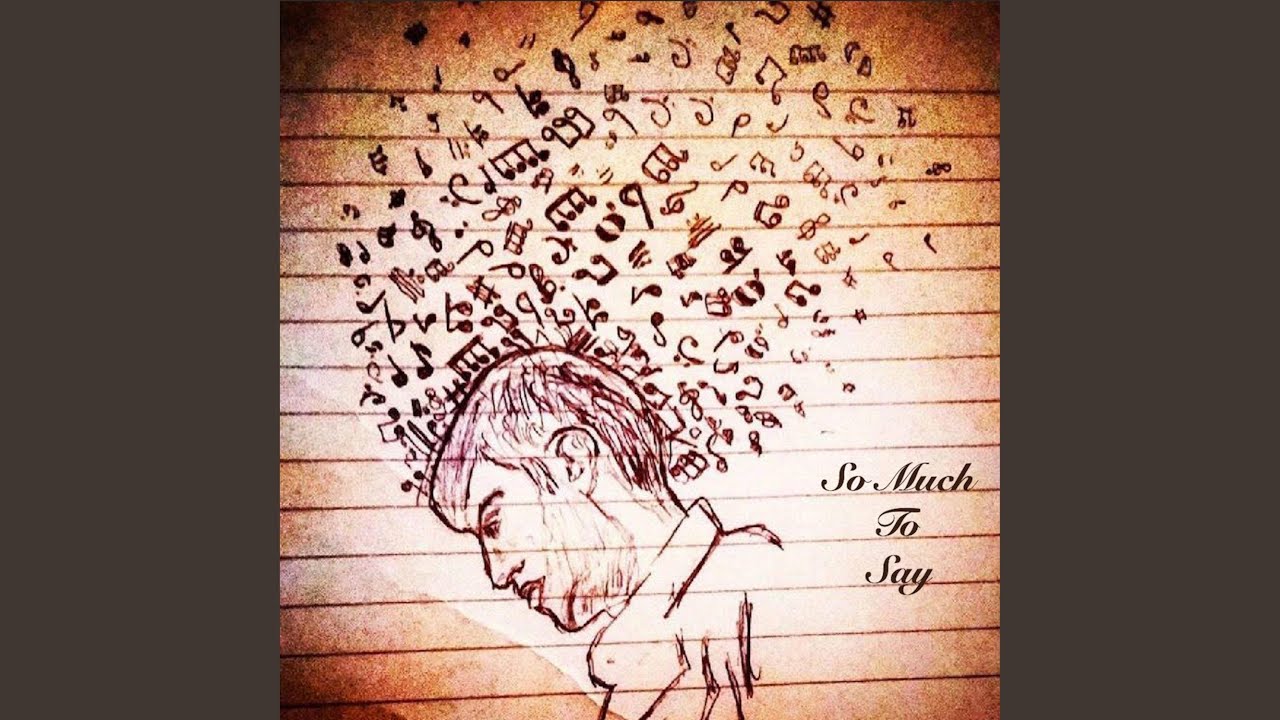 So Much
To
Say